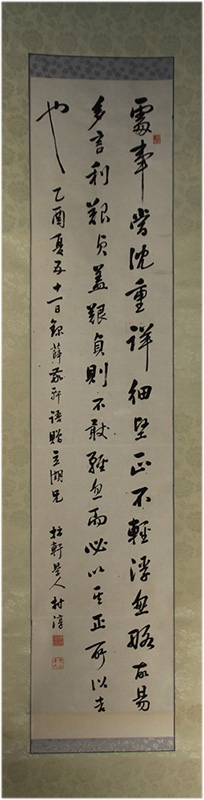 處事當沈重詳細堅正不輕浮忽略故易
多言利艱貞蓋艱貞則不敢輕忽而必以其正所以吉
也 乙酉夏五十一日錄薛敬軒語贈立湖兄 軒 人村淳